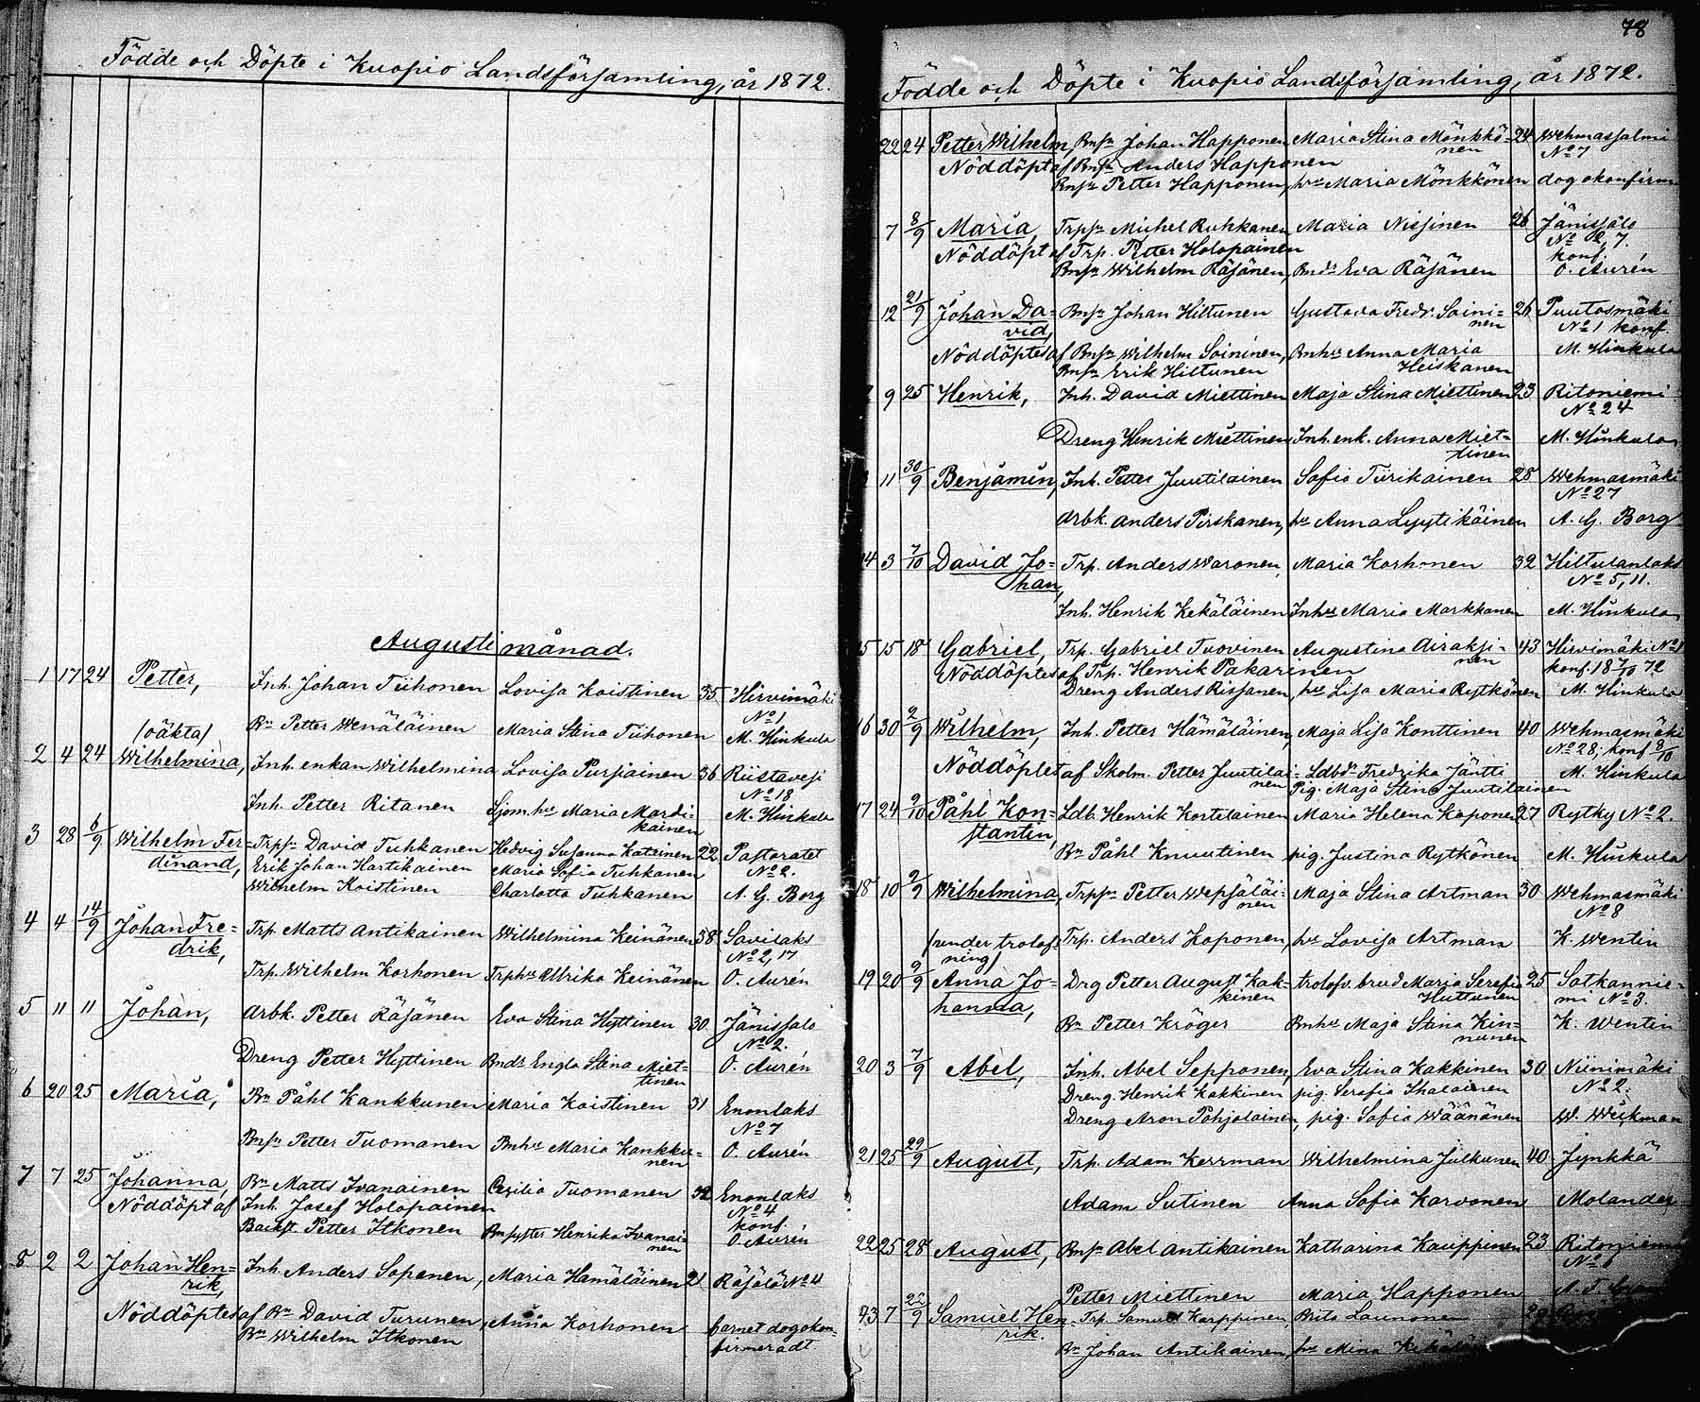 Födde och Döpte i Kuopio Landsförsamling, år 1872.
Augusti månad.
1 17 24 Petter, Inh. Johan Tiihonen Lovisa Koistinen 35 Hirvimäki
No 1
Bn Petter Wenäläinen Maria Stina Tiihonen M. Hinkula
/oäkta/
2 4 24 Wilhelmina, Inh. enkan Wilhelmina Lovisa Purjainen 36 Riistavesi
No 18
Inh. Petter Ritanen hu Maria Mardi-
kainen M. Hinkula
3 28 6/9 Wilhelm Fer- Trpsn David Tuhkanen Hedvig Susanna Katainen 22 Pastoratet
dinand, Erik Johan Hartikainen Maria Sofia Tuhkanen No 2.
Wilhelm Koistinen Charlotta Tuhkanen A. G. Borg
4 4 14/9 Johan Fre- Trp. Matts Antikainen Wilhelmina Keinänen 38 Savilaks
drik, No 2, 17
Trp. Wilhelm Korhonen Trphu Ulrika Keinänen O. Aurén
5 11 11 Johan, Arbk. Petter Räsänen Eva Stina Hyttinen 30 Jänissalo
No 2.
Dreng Petter Hyttinen Bmdr Engla Stina Miet-
tinen O. Aurén
6 20 25 Maria, Bn Påhl Kankkunen Maria Koistinen 31 Enonlaks
No 7
Bmsn Petter Tuomanen Bmhu Maria Kankku-
nen O. Aurén
7 7 25 Johanna Bn Matts Ivanainen Cecilia Tuomanen 32 Enonlaks
Nöddöpt af Inh. Josef Holopainen No 4
Petter Itkonen Bmsyster Henrika Ivanai-
nen konf.
O. Aurén
8 2 2 Johan Hen- Inh. Anders Soponen, Maria Hämäläinen 21 Räsälä No 4
rik,
Nöddöptes af Bn David Turunen, Anna Korhonen barnet dog okon-
Bn Wilhelm Itkonen firmeradt.
78
Födde och Döpte i Kuopio Landsförsamling, år 1872.
22 24 Petter Wilhelm, Bmsn Johan Happonen Maria Stina Mönkkö- 24 Wehmassalmi
nen No 7
Nöddöpt af Bmsn Anders Happonen
Bmsn Petter Happonen, hu Maria Mönkkönen dog okonfirm
7 8/9 Maria, Trpsn Michel Ruhkanen Maria Nissinen 26 Jänissalo
Nöddöpt af Trp. Petter Holopainen No 2, 7.
konf.
Bmsn Wilhelm Räsänen, Bmdr Eva Räsänen O. Aurén
12 21/9 Johan Da- Bmsn Johan Hiltunen Gustava Fredr. Soini- 26 Puutosmäki
vid, nen No 1 konf.
Nöddöptes af Bmsn Wilhelm Soininen, Bmhu Anna Maria M. Hinkula
Bmsn Erik Hiltunen Heiskanen
9 25 Henrik, Inh. David Miettinen Maja Stina Miettinen 23 Ritoniemi
No 24
Dreng Henrik Miettinen Inh. enk. Anna Miet-
tinen M. Hinkula
11 30/9 Benjamin, Inh. Petter Juutilainen Sofia Tiirikainen 28 Wehmasmäki
No 27
Arbk. Anders Pirskanen, hu Anna Lyytikäinen A. G. Borg
14 3 7/10 David Jo- Trp. Anders Waronen Maria Korhonen 32 Hiltulanlaks
han, No 5, 11.
Inh. Henrik Kekäläinen Inhhu Maria Markkanen M. Hinkula
15 15 18 Gabriel, Trp. Gabriel Tuovinen Augustina Airaksi- 43 Hirvimäki No 1
nen
Nöddöptes af Trp. Henrik Pakarinen konf. 18 7/10 72
Dreng Anders Rissanen, hu Lisa Maria Rytkönen M. Hinkula
16 30 2/9 Wilhelm, Inh. Petter Hämäläinen, Maja Lisa Konttinen 40 Wehmasmäki
No 28; konf. 8/10
Nöddöptes af Skolm. Petter Juutilai- Ldbdr Fredrika Jäntti M. Hinkula
nen Pig. Maja Stina Juutilainen
17 24 2/10 Påhl Kon- Ldb. Henrik Kortelainen Maria Helena Kaponen 27 Rytky No 2.
stantin,
Bn Påhl Knuutinen pig. Justina Rytkönen M. Hinkula
18 10 2/9 Wilhelmina, Trpsn Petter Wepsäläi- Maja Stina Artman 30 Wehmasmäki
nen No 8
Trp. Anders Koponen, hu Lovisa Artman K. Wentin
/under trolof-
ning/
19 20 9/9 Anna Jo- Drg Petter August Kak- trolofv. brud Maria Serafia 25 Sotkannie-
hanna, kinen Huttunen mi No 3.
Bn Petter Kröger Bmhu Maja Stina Kin-
nunen K. Wentin
20 3 7/9 Abel, Inh. Abel Sepponen, Eva Stina Kakkinen 30 Niinimäki
Dreng. Henrik Kakkinen pig. Serafia Ihalainen No 2.
Dreng Aron Pohjolainen, pig. Sofia Wäänänen W. Wickman
21 25 29/9 August, Trp. Adam Kerrman Wilhelmina Julkunen 40 Jynkkä
Adam Sutinen Anna Sofia Karvonen Molander
22 25 28 August, Bmsn Abel Antikainen Katharina Kauppinen 23 Ritoniemi
No 6
Petter Miettinen Maria Happonen
23 7 22/9 Samuel Hen- Trp. Samuel Karppinen, Brita Launonen
rik.
Bn Johan Antikainen, hu Mina